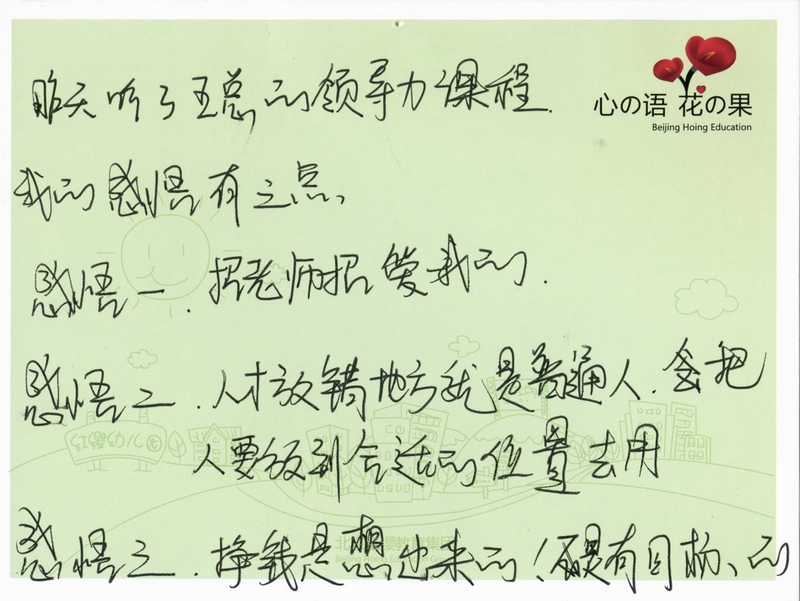 心の语 花の果
Beijing Hoing Education
昨天听了王总的领导力课程.
我的感悟有三点、
感悟一.招老师招爱我的.
感悟二.人才放错地方就是普通人.会把
人要放到合适的位置去用
红缨幼儿园
北京红缨教育集团
感悟三.挣钱是想出来的！要有目标、的